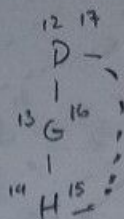 12 17
D
13 G 16
14 15
H